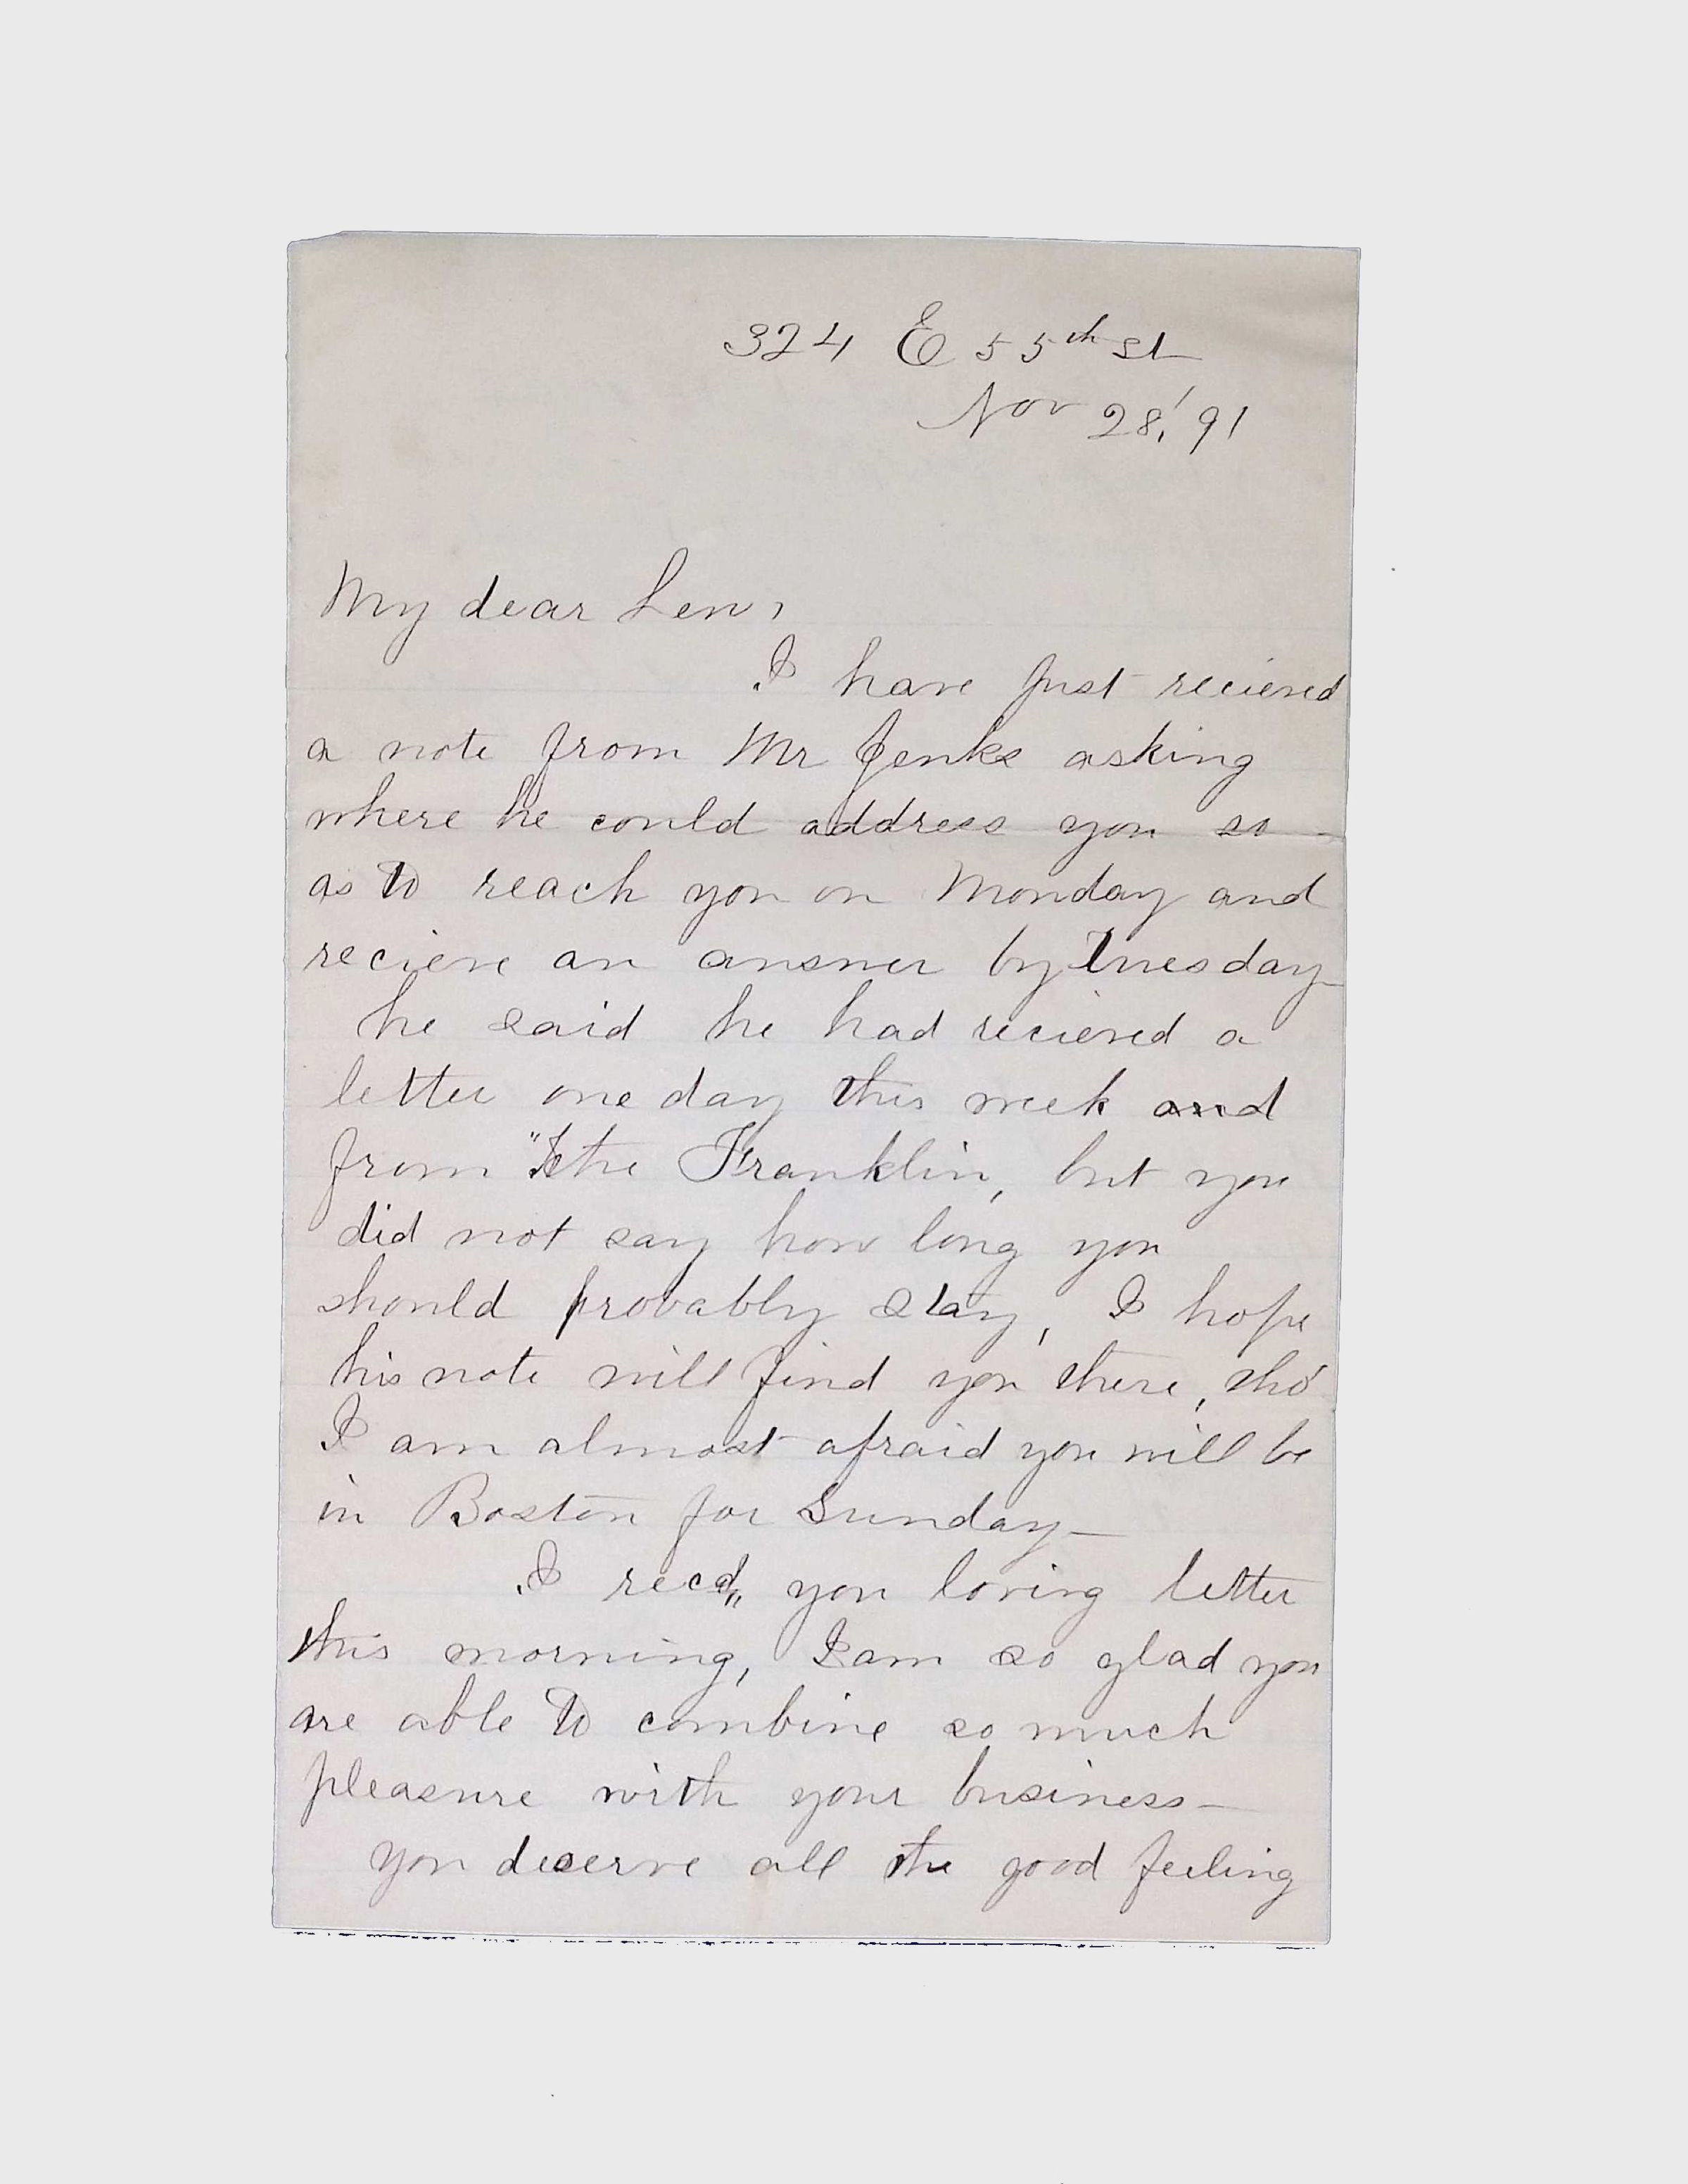 324 E 55th St
Nov 28, '91
My dear Lew,
I have just recieved
a note from Mr Jenks asking
where he could address you so
as to reach you on Monday and
recieve an answer by Tuesday
he said he had recieved a
letter one day this week and
from "the Franklin, but you
did not say how long you
should probably stay, I hope
his note will find you there, tho'
I am almost afraid you will be
in Boston for Sunday—
I recd, you loving letter
this morning, I am so glad you
are able to combine so much
pleasure with your business—
you deserve all the good feeling